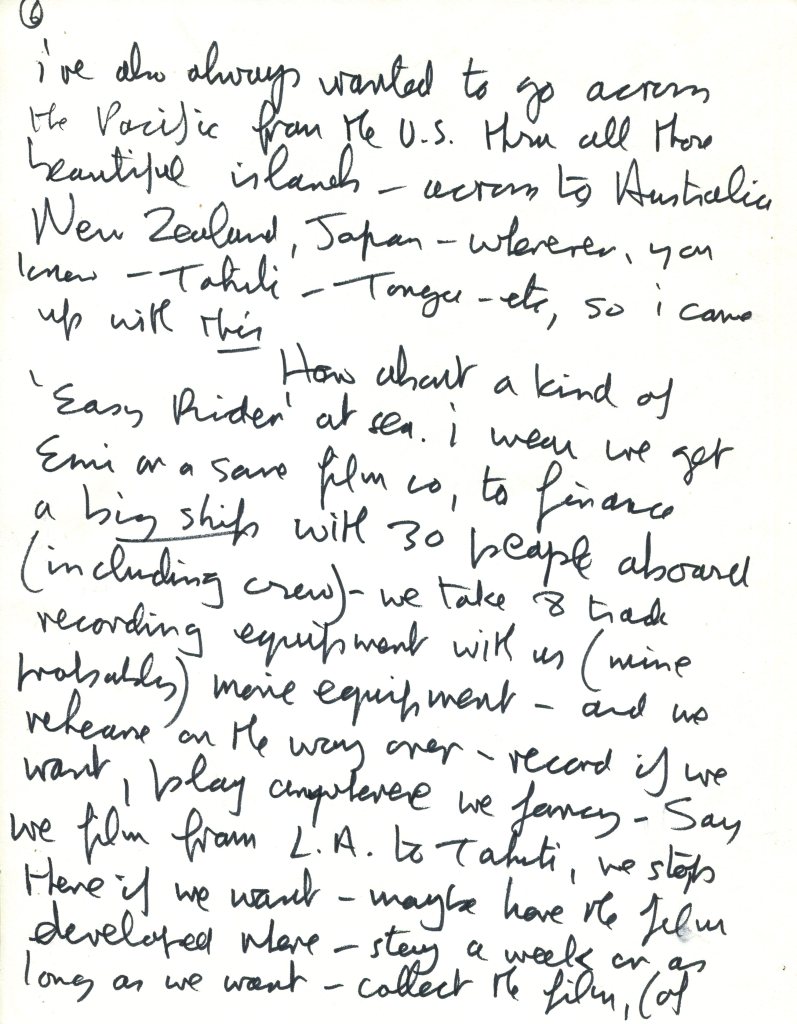 6
i've also always wanted to go across
the Pacific from the U.S. thru all those
beautiful islands – across to Australia
New Zealand, Japan – wherever, you
know – Tahiti – Tonga – etc, so i came
up with this
How about a kind of
'Easy Rider' at sea. i mean we get
Emi or a some film co, to finance
a big ship with 30 people aboard
(including crew) – we take 8 track
recording equipment with us (mine
probably) movie equipment – and we
rehearse on the way over – record if we
want, play anywhere we fancy – Say
we film from L.A. to Tahiti, we stop
there if we want – maybe have the film
developed there – stay a week or as
long as we want – collect the film, (of